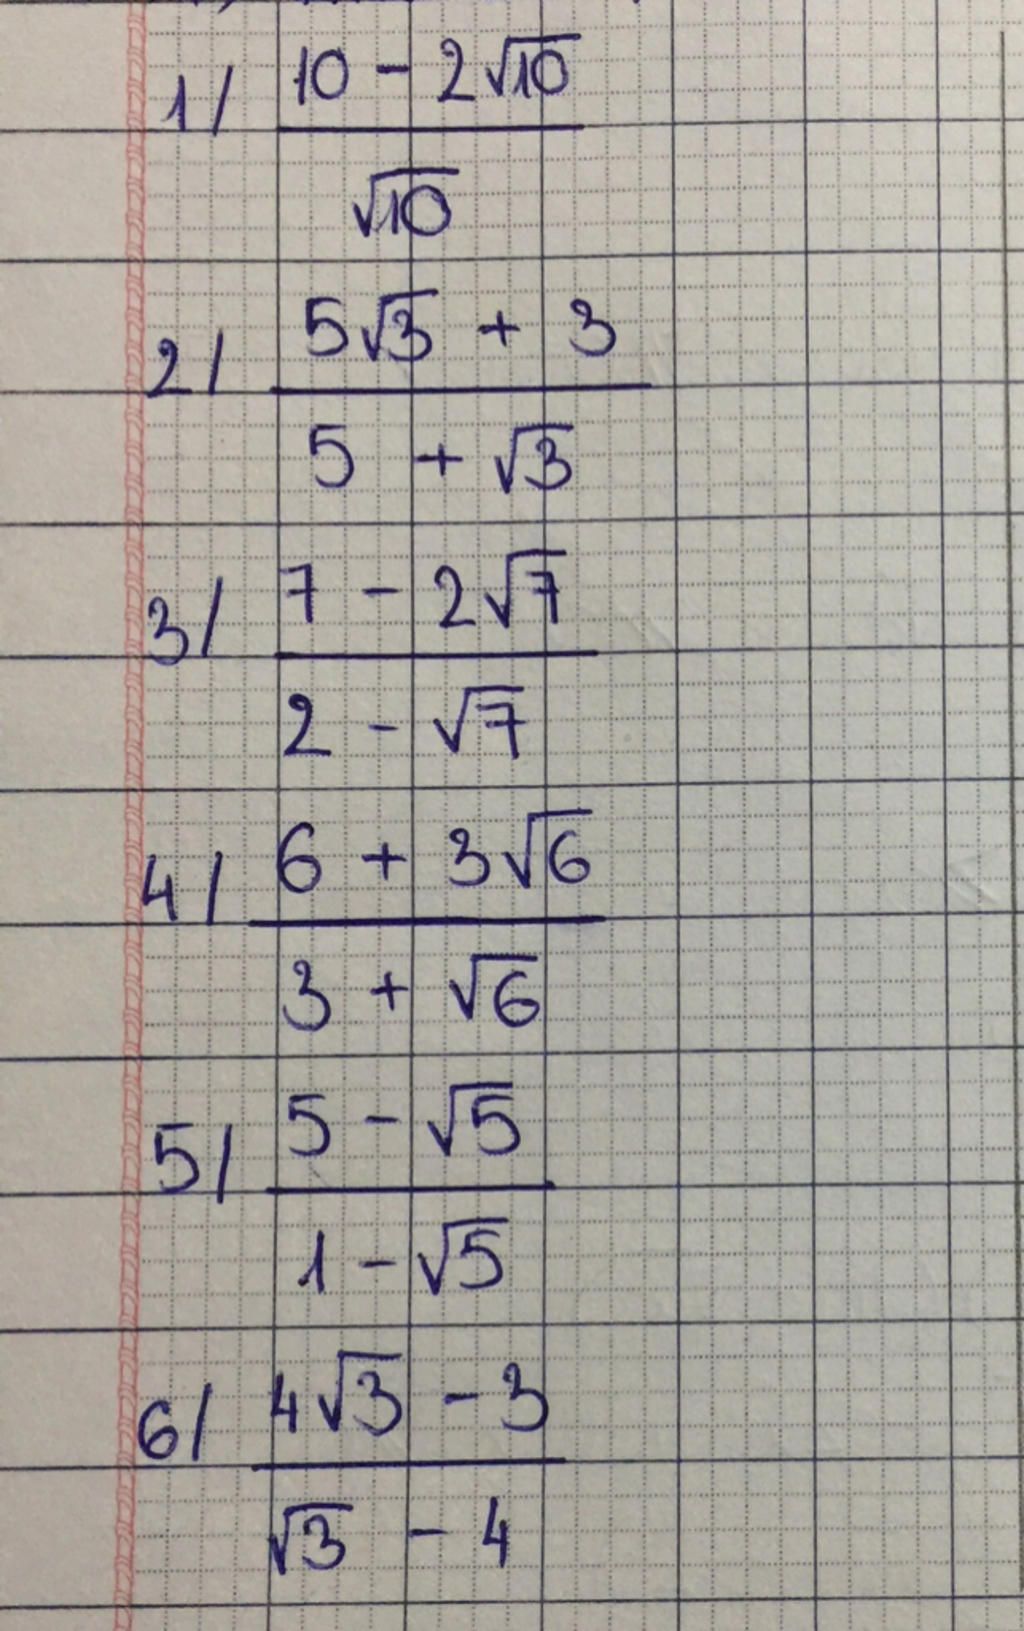 1/ (10 - 2√10) / √10
2/ (5√3 + 3) / (5 + √3)
3/ (7 - 2√7) / (2 - √7)
4/ (6 + 3√6) / (3 + √6)
5/ (5 - √5) / (1 - √5)
6/ (4√3 - 3) / (√3 - 4)